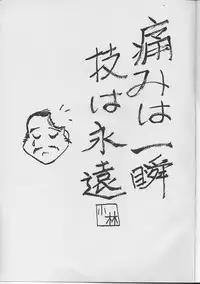 痛みは一瞬
技は永遠
小林